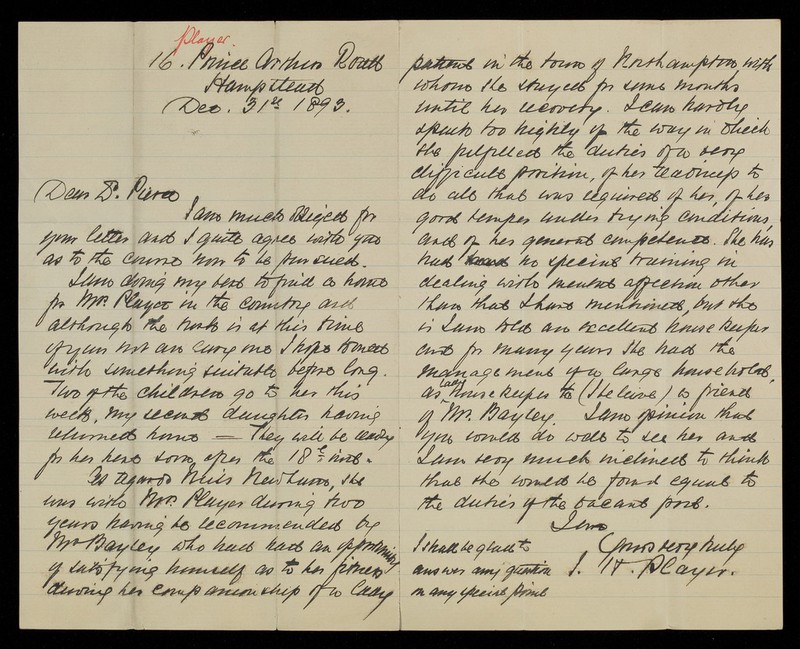 Player.
16. Prince Arthur Road
Hampstead
Dec. 31st 1893.
Dear Dr. Pierce
I am much obliged for
your letter and I quite agree with you
as to the course now to be pursued.
I am doing my best to find a home
for Mrs. Player in the country and
although the task is at this time
of year not an easy one I hope to meet
with something suitable before long.
Two of the children go to her this
week, my second daughter having
returned home — They will be ready
for her here soon after the 18th inst.
As regards Miss Newham, she
was with Mrs. Player during two
years having be recommended by
Mr Bayley who had had an opportunity
of satisfying himself as to her fitness
during her companionship of a lady
patient in the town of Northampton with
whom she stayed for some months
until her recovery. I can hardly
speak too highly of the way in which
she fulfilled the duties of a very
difficult position, of her readiness to
do all that was required of her, of her
good temper under trying conditions,
and of her general competence. She has
had no special training in
dealing with mental affection other
than that I have mentioned, but she
is I am told an excellent house keeper
and for many years she had the
management of a large household,
as lady housekeeper to (I believe) a friend
of Mr. Bayley. I am opinion that
you would do well to see her and
I am very much inclined to think
that she would be found equal to
the duties of the vacant post.
I am
Yours very truly
J. H. Player.
I shall be glad to
answer any question
on any special point